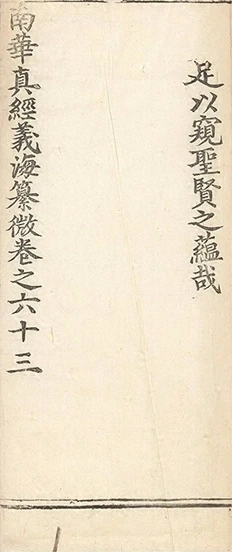 足以窺聖賢之蘊哉
南華真經義海纂微卷之六十三